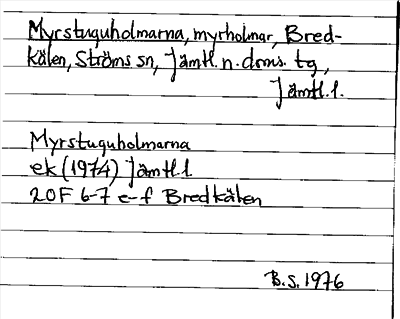 Myrstuguholmarna, myrholmar, Bred-
kälen, Ströms sn, Jämtl. n. doms. tg,
Jämtl. l.
Myrstuguholmarna
ek (1974) Jämtl. l
20F 6-7 e-f Bredkälen
B.S. 1976